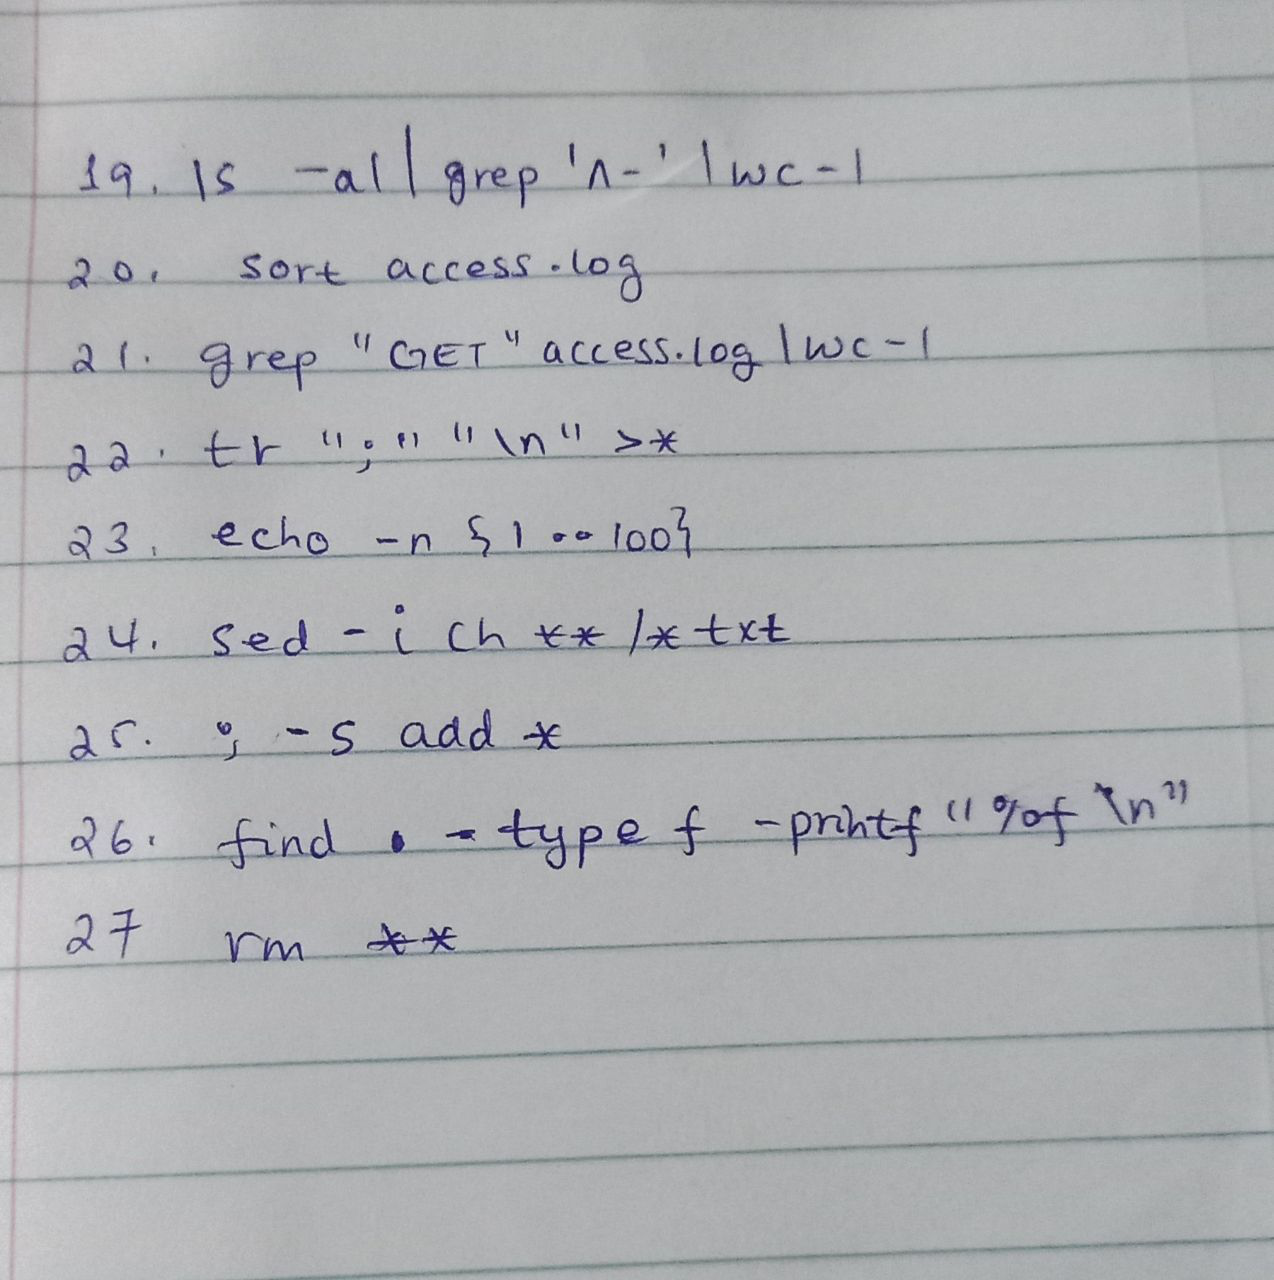 19. ls -al | grep '^-' | wc -l
20. sort access.log
21. grep "GET" access.log | wc -l
22. tr ";" "\n" >*
23. echo -n {1..100}
24. sed -i ch **/* txt
25. ; -s add *
26. find . -type f -printf "%of \n"
27 rm **